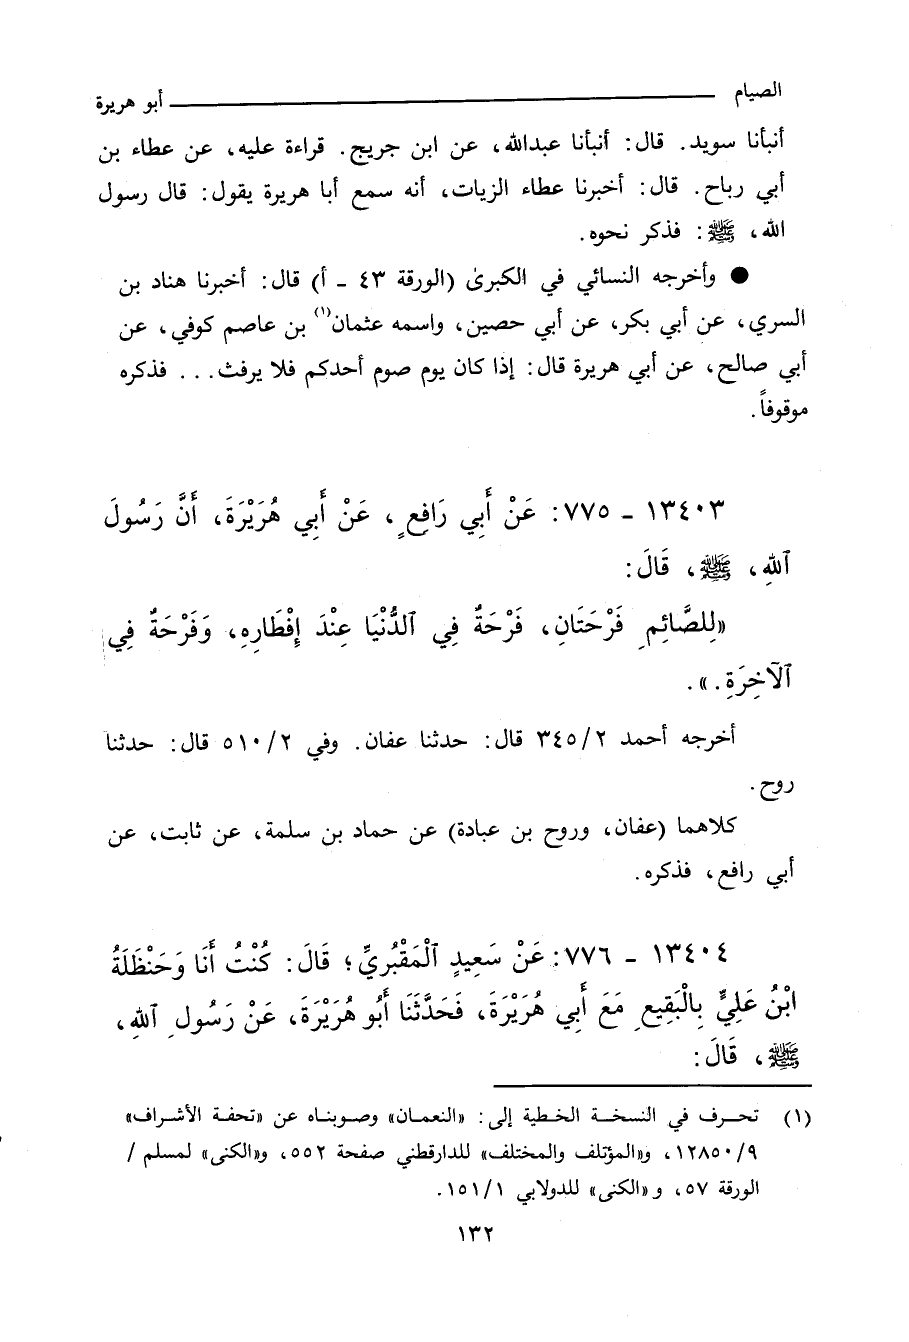 الصيام ـــــــــــــــــ أبو هريرة
أنبأنا سويد. قال: أنبأنا عبدالله، عن ابن جريج. قراءة عليه، عن عطاء بن
أبي رباح. قال: أخبرنا عطاء الزيات، أنه سمع أبا هريرة يقول: قال رسول
الله، ﷺ: فذكر نحوه.
● وأخرجه النسائي في الكبرىٰ (الورقة ٤٣ ـ أ) قال: أخبرنا هناد بن
السري، عن أبي بكر، عن أبي حصين، واسمه عثمان(١) بن عاصم كوفي، عن
أبي صالح، عن أبي هريرة قال: إذا كان يوم صوم أحدكم فلا يرفث... فذكره
موقوفاً.
١٣٤٠٣ ـ ٧٧٥: عَنْ أَبِي رَافِعٍ، عَنْ أَبِي هُرَيْرَةَ، أَنَّ رَسُولَ
ٱللهِ، ﷺ، قَالَ:
«لِلصَّائِمِ فَرْحَتَانِ، فَرْحَةٌ فِي ٱلدُّنْيَا عِنْدَ إِفْطَارِهِ، وَفَرْحَةٌ فِي
ٱلآخِرَةِ.».
أخرجه أحمد ٣٤٥/٢ قال: حدثنا عفان. وفي ٥١٠/٢ قال: حدثنا
روح.
كلاهما (عفان، وروح بن عبادة) عن حماد بن سلمة، عن ثابت، عن
أبي رافع، فذكره.
١٣٤٠٤ ـ ٧٧٦: عَنْ سَعِيدٍ ٱلْمَقْبُرِيِّ؛ قَالَ: كُنْتُ أَنَا وَحَنْظَلَةُ
ابْنُ عَلِيٍّ بِالْبَقِيعِ مَعَ أَبِي هُرَيْرَةَ، فَحَدَّثَنَا أَبُو هُرَيْرَةَ، عَنْ رَسُولِ ٱللهِ،
ﷺ، قَالَ:
(١) تحرف في النسخة الخطية إلى: «النعمان» وصوبناه عن «تحفة الأشراف»
١٢٨٥٠/٩، و«المؤتلف والمختلف» للدارقطني صفحة ٥٥٢، و«الكنى» لمسلم /
الورقة ٥٧، و«الكنى» للدولابي ١٥١/١.
١٣٢